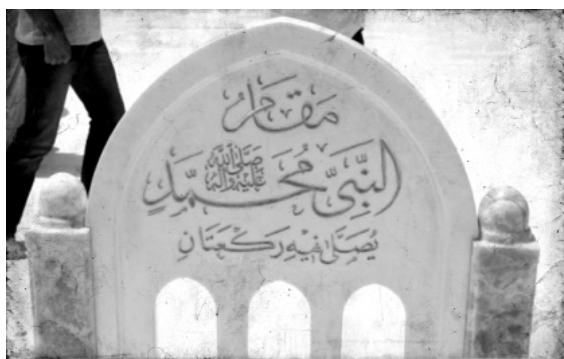 مَقَام
النَّبِيّ مُحَمَّدٍ صَلَّى اللّٰه عَلَيْهِ وَآلِهِ
يُصَلَّىٰ فِيهِ رَكْعَتَانِ